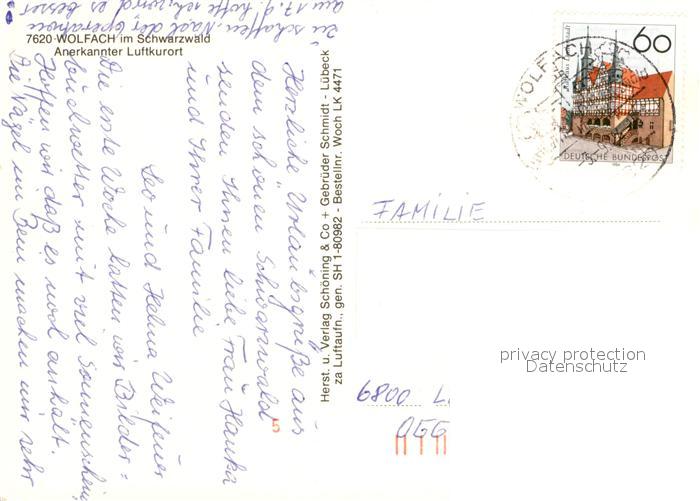 7620 WOLFACH im Schwarzwald
Anerkannter Luftkurort
Herzliche Urlaubsgrüße aus
dem schönen Schwarzwald
senden Ihnen liebe Frau Hauka
und Ihrer Familie
Leo und Helma
Die erste Woche hatten wir Bilder=
buchwetter mit viel Sonnenschein,
Hoffen wir daß es noch anhält.
Die Nägel im Bein machen mir sehr
zu schaffen. Nach der Operation
am 17.9. hoffe ich, wird es besser
Herst. u. Verlag Schöning & Co + Gebrüder Schmidt - Lübeck
za Luftaufn., gen. SH 1-80982 - Bestellnr. Woch LK 4471
60
DEUTSCHE BUNDESPOST
WOLFACH
FAMILIE
privacy protection
Datenschutz
6800
OGG
5